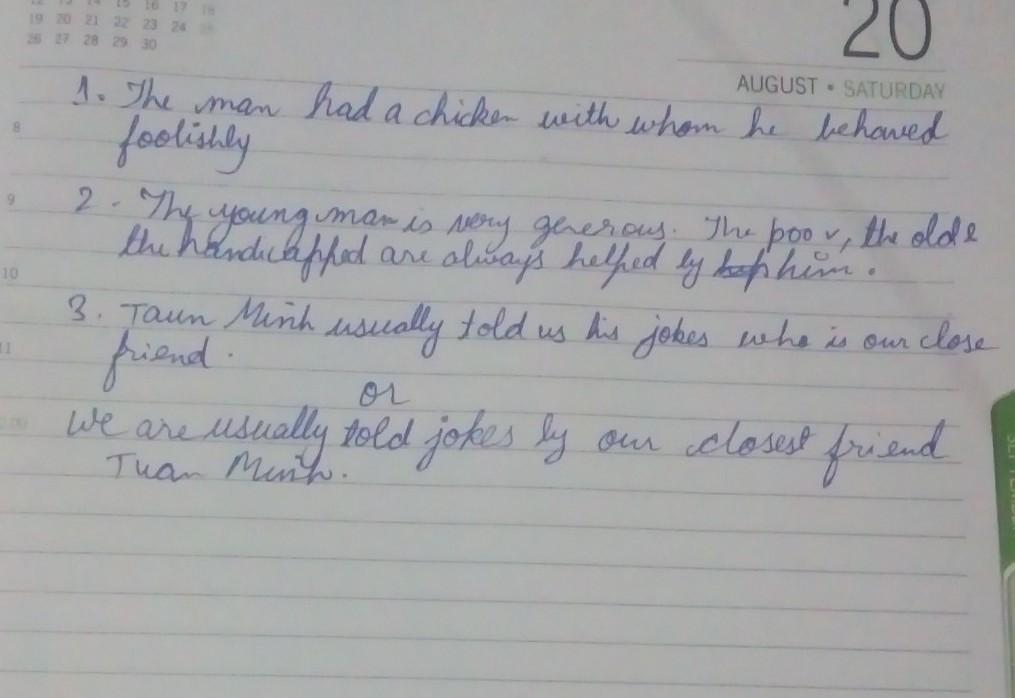 12 13 14 15 16 17 18
19 20 21 22 23 24 25
26 27 28 29 30
20
AUGUST • SATURDAY
1. The man had a chicken with whom he behaved
8
foolishly
9
2. The young man is very generous. The poor, the old &
the handicapped are always helped by him.
10
3. Taun Minh usually told us his jokes who is our close
11
friend.
or
We are usually told jokes by our closest friend
Tuan Minh.